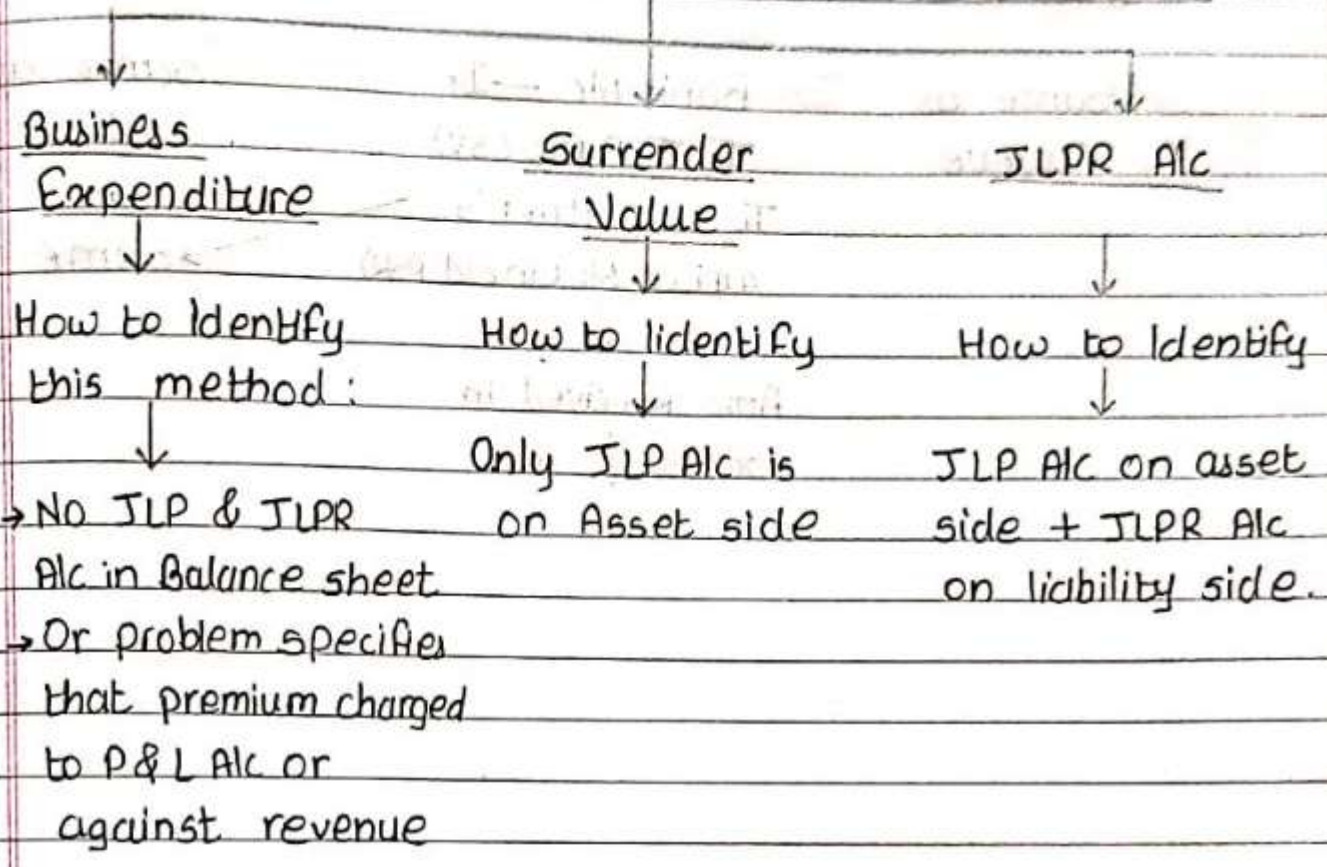 Business
Expenditure
How to Identify
this method :
→ No JLP & JLPR
A/c in Balance sheet
→ Or problem specifies
that premium charged
to P & L A/c or
against revenue
Surrender
Value
How to Iidentify
Only JLP A/c is
on Asset side
JLPR A/c
How to Identify
JLP A/c on asset
side + JLPR A/c
on liability side.